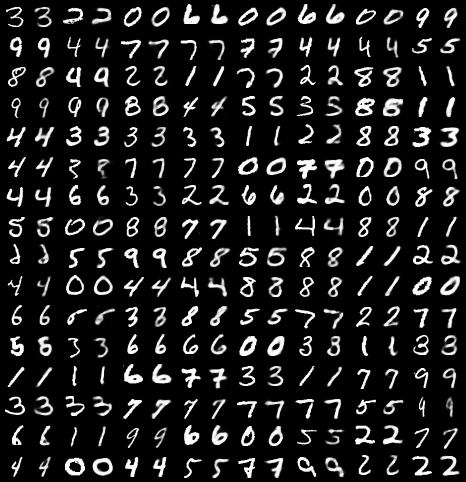 3 3 2 2 0 0 6 6 0 0 6 6 0 0 9 9
9 9 4 4 7 7 7 7 7 7 4 4 4 4 5 5
8 8 9 9 2 2 1 1 7 7 2 2 8 8 1 1
9 9 9 9 8 8 4 4 5 5 3 5 8 8 1 1
4 4 3 3 3 3 3 3 1 1 2 2 8 8 3 3
4 4 3 8 7 7 7 7 0 0 7 7 0 0 9 9
4 4 6 6 3 3 2 2 6 6 2 2 0 0 8 8
5 5 0 0 8 8 7 7 1 1 4 4 8 8 1 1
5 5 9 9 8 8 5 5 8 8 1 1 2 2
4 4 0 0 4 4 4 4 8 8 8 8 1 1 0 0
6 6 3 3 8 8 5 5 7 7 2 2 7 7
5 5 3 3 6 6 6 6 0 0 3 3 1 1 3 3
1 1 1 1 6 6 7 7 3 3 1 1 7 7 9 9
3 3 3 3 7 7 7 7 7 7 7 7 5 5 9 9
6 6 1 1 9 9 6 6 0 0 5 5 2 2 7 7
4 4 0 0 4 4 5 5 7 7 9 9 2 2 2 2